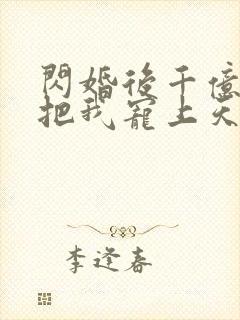 閃婚後千億
把我寵上天
李逢春